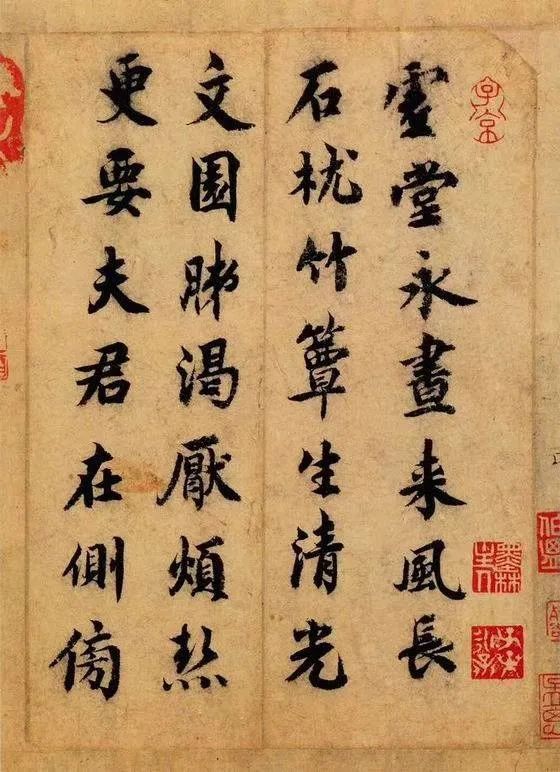 虚堂永晝来風長
石枕竹簟生清光
文園肺渴厭煩熱
更要夫君在側傍
子京
墨林